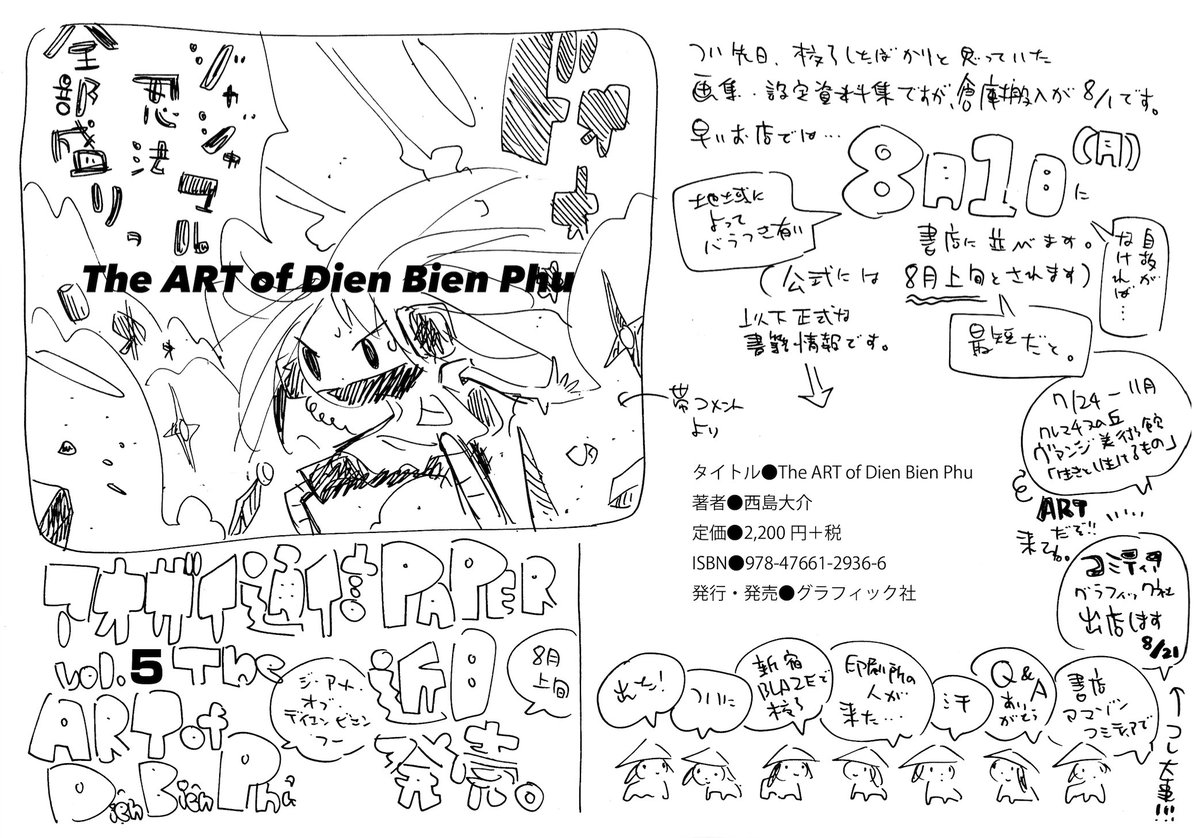 全部盛り。
悪魔
The ART of Dien Bien Phu
つい先日、校了したばかりと思っていた
画集・設定資料集ですが、倉庫搬入が8/1です。
早いお店では…
8月1日(月)に
地域に
よって
バラつき有い
書店に並べます。
(公式には
8月上旬とされます)
自粛が
なければ…
最短だと。
以下正式な
書籍情報です。
帯コメント
より
タイトル●The ART of Dien Bien Phu
著者●西島大介
定価●2,200円+税
ISBN●978-47661-2936-6
発行・発売●グラフィック社
7/24-11月
クレマチスの丘
ヴァンジ美術館
「生きとし生けるもの」
ART
だぞ!!
来てね。
コミティア
グラフィック社
出店します
8/21
コレ大事!!!
PAPER
vol.5 The
ART of
Điện Biên Phủ
近日
発売。
8月
上旬
ジ・アート・
オブ・
ディエン・ビエン・
フー
出た!
ついに
新宿
BLAZEで
校了
印刷所の
人が
来た…
汗
Q&A
ありがとう
書店
アマゾン
コミティアで